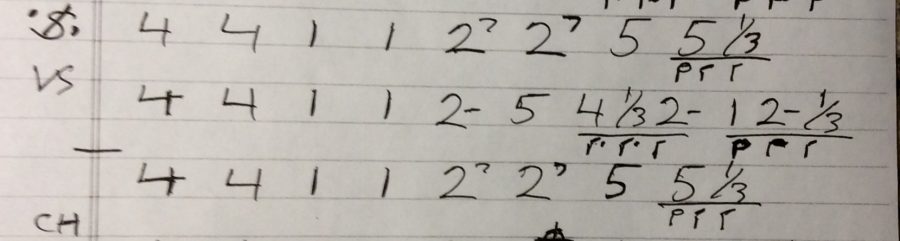 4 4 1 1 2⁷ 2⁷ 5 5 1/3
VS
4 4 1 1 2- 5 4 1/3 2- 1 2- 1/3
4 4 1 1 2⁷ 2⁷ 5 5 1/3
CH